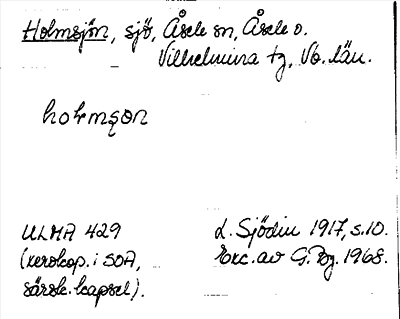 Holmsjön, sjö, Åsele sn, Åsele o.
Vilhelmina tg, Vb. län.
holmsøn
ULMA 429
(xerokop. i SOA,
särsk. kapsel).
L. Sjödin 1917, s. 10.
Exc. av G. Bg. 1968.